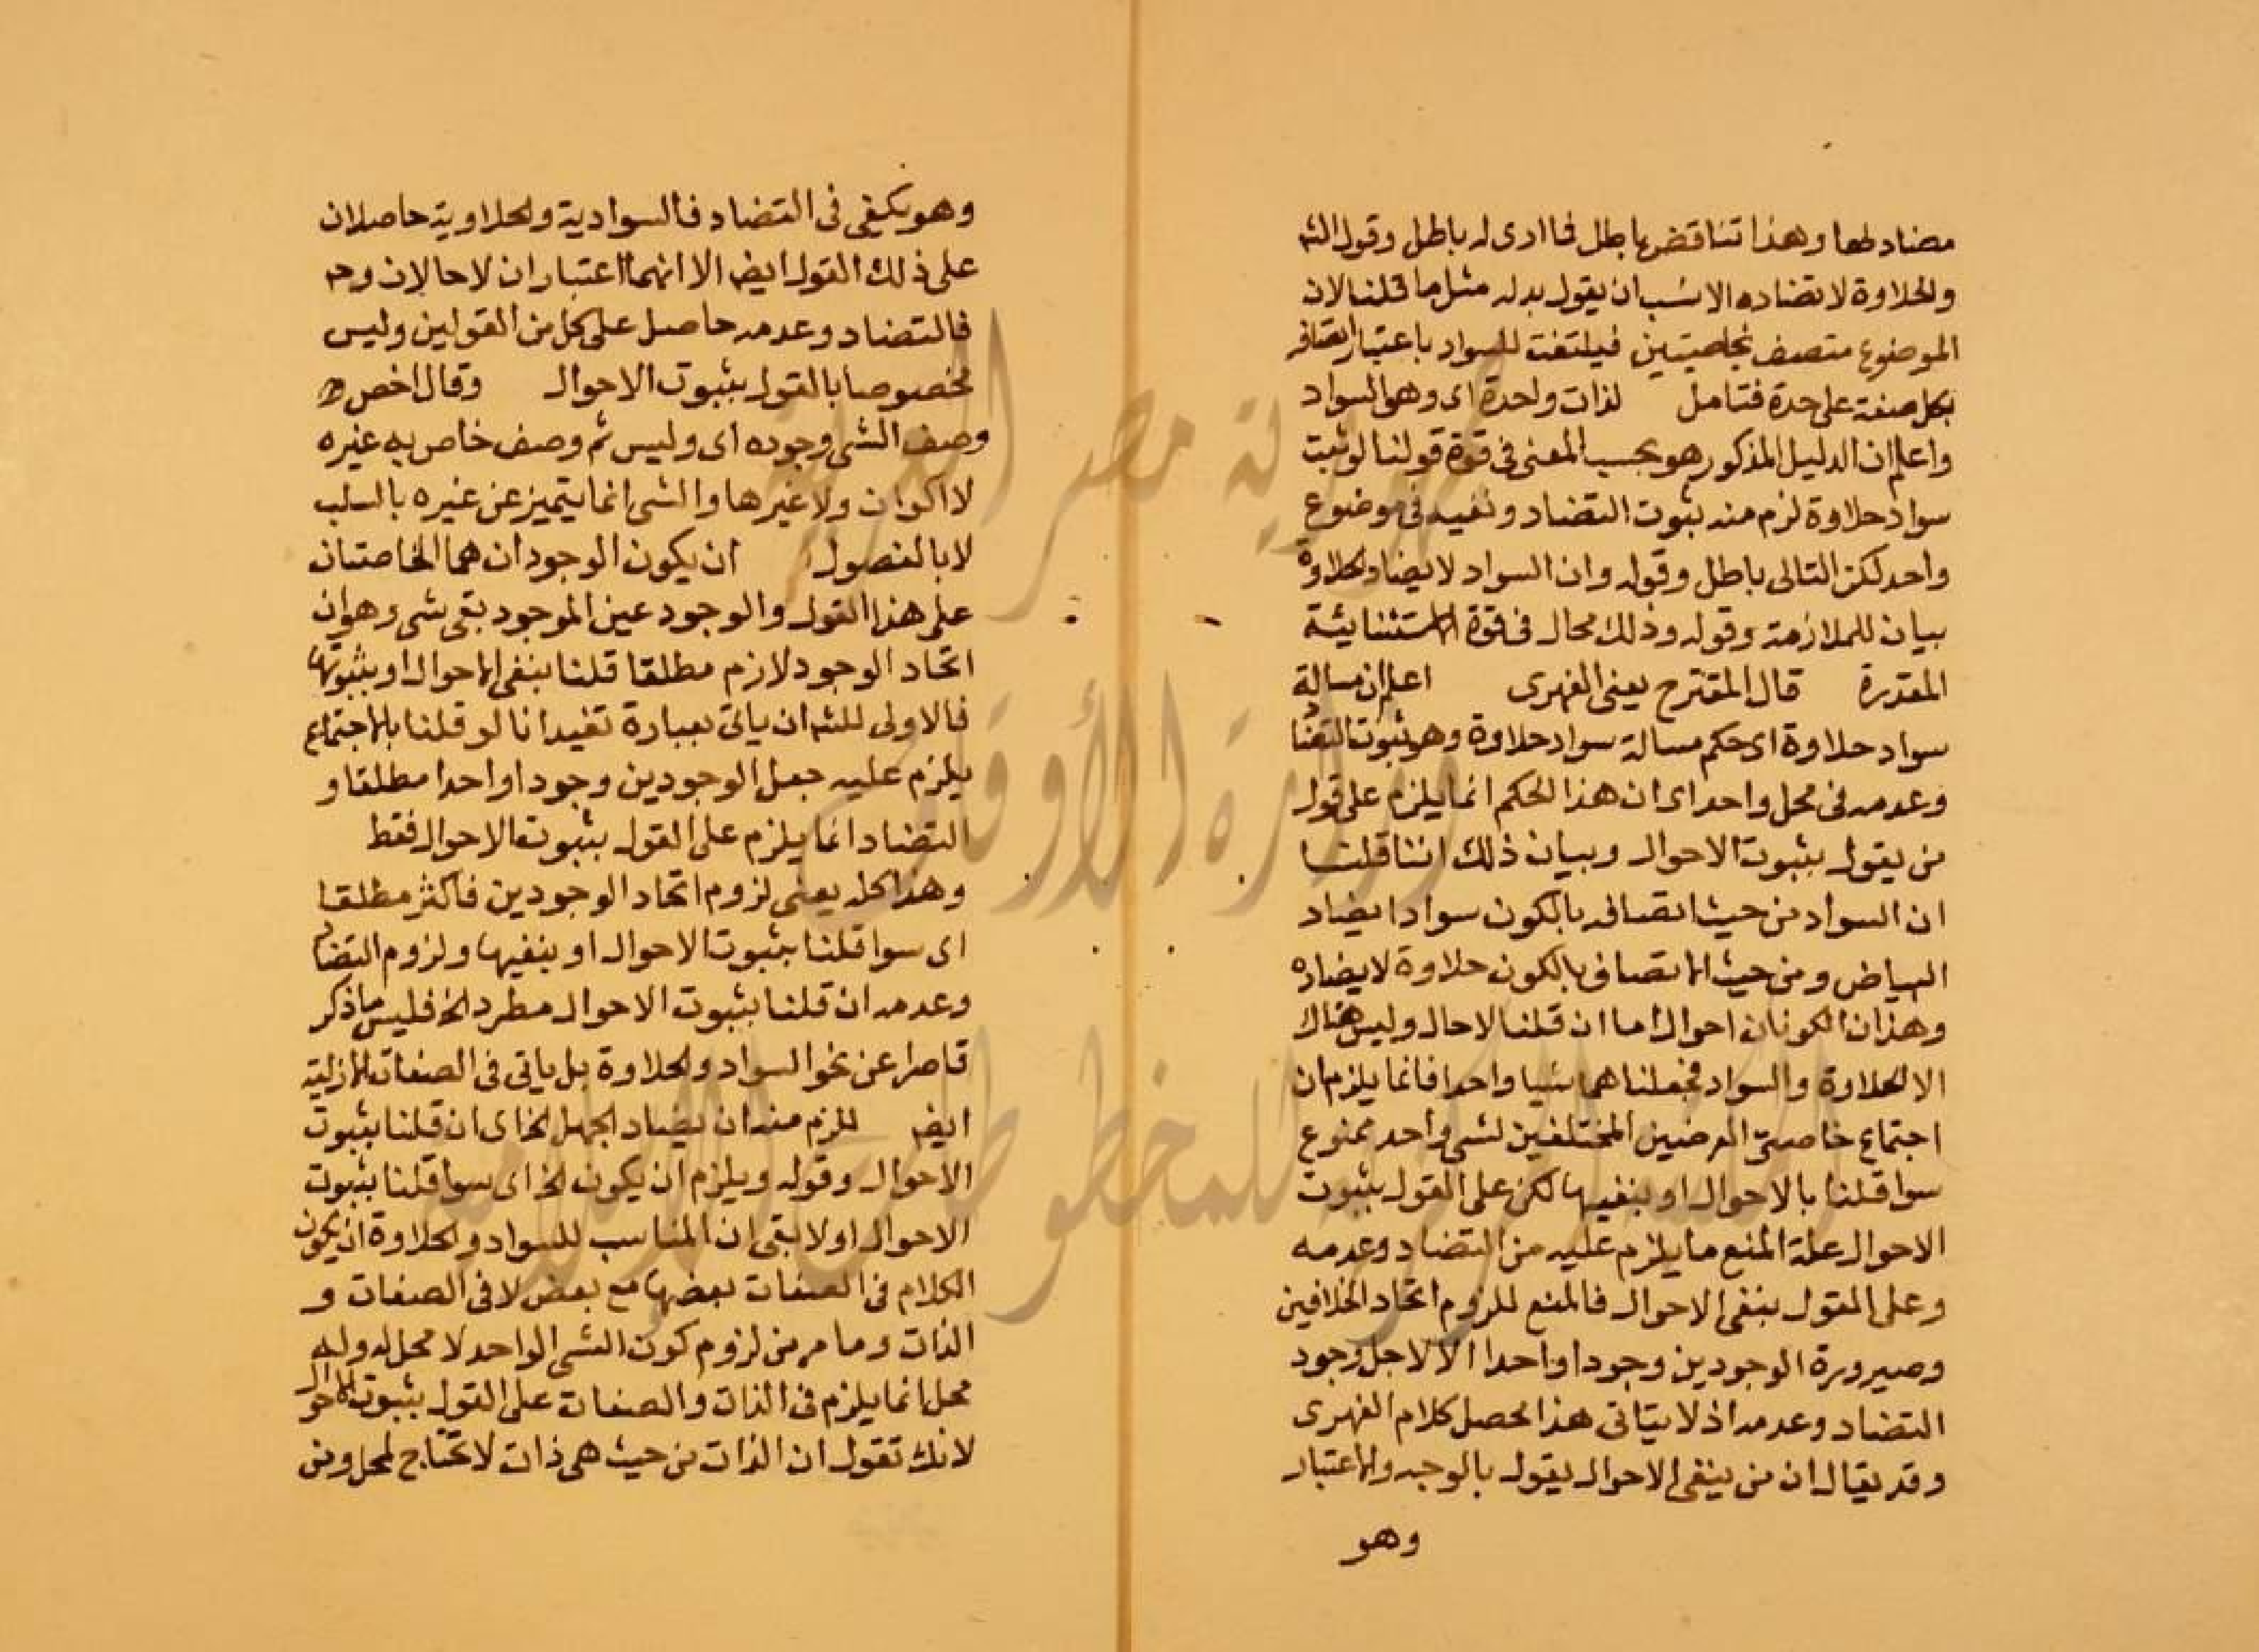 مضاد لها وهذا تناقض باطل فما ادى له باطل وقول الشه
والحلاوة لا تضاده الانسب ان يقول بدله مثل ما قلنا لان
الموضوع متصف بخاصيتين فيلتفت للسواد باعتبار اتصافه
بكل صفة على حدة فتامل لذات واحدة اى وهو السواد
واعلم ان الدليل المذكور هو بحسب المعنى فى قوة قولنا لو ثبت
سواد حلاوة لزم منه ثبوت التضاد ونفيه فى موضوع
واحد لكن التالى باطل وقوله وان السواد لا يضاد الحلاوة
بيان للملازمة وقوله وذلك محال فى قوة الاستثنائية
المقدرة قال المقترح يعنى الفهرى اعلم ان مسالة
سواد حلاوة اى حكم مسالة سواد حلاوة وهو ثبوت التضاد
وعدمه فى محل واحد اى ان هذا الحكم انما يلزم على قول
من يقول بثبوت الاحوال وبيان ذلك اننا قلنا
ان السواد من حيث اتصافه بالكون سوادا يضاد
البياض ومن حيث الاتصاف بالكون حلاوة لا يضاده
وهذان الكونان احوال اما ان قلنا لا حال وليس هناك
الا الحلاوة والسواد فجعلناهما شيا واحدا فانما يلزم ان
اجتماع خاصتى العرضين المختلفين لشى واحد ممنوع
سوا قلنا بالاحوال او بنفيها لكن على القول بثبوت
الاحوال علة المنع ما يلزم عليه من التضاد وعدمه
وعلى القول بنفى الاحوال فالمنع للزوم اتحاد الخلافين
وصيرورة الوجودين وجودا واحدا لا لاجل وجود
التضاد وعدمه اذ لا يتاتى هذا محصل كلام الفهرى
وقد يقال ان من ينفى الاحوال يقول بالوجه والاعتبار
وهو
وهو يكفى فى التضاد فالسوادية والحلاوية حاصلان
على ذلك القول ايضا الا انهما اعتباران لا حالان وح
فالتضاد وعدمه حاصل على كل من القولين وليس
مخصوصا بالقول بثبوت الاحوال وقال اخص
وصف الشى وجوده اى وليس ثم وصف خاص به غيره
لا اكوان ولا غيرها والشى انما يتميز عن غيره بالسلب
لا بالفصول ان يكون الوجودان هما الخاصتان
على هذا القول والوجود عين الموجود بقى شى وهو ان
اتحاد الوجود لازم مطلقا قلنا بنفى الاحوال او بثبوتها
فالاولى للشه ان ياتى بعبارة تفيد انا لو قلنا بالاجتماع
يلزم عليه جعل الوجودين وجودا واحدا مطلقا و
التضاد انما يلزم على القول بثبوت الاحوال فقط
وهذا كله يعنى لزوم اتحاد الوجودين فاكثر مطلقا
اى سوا قلنا بثبوت الاحوال او بنفيها ولزوم التضاد
وعدمه ان قلنا بثبوت الاحوال مطرد الخ فليس ما ذكر
قاصرا عن نحو السواد والحلاوة بل ياتى فى الصفات الازلية
ايضا للزم منه ان يضاد الجهل الخ اى ان قلنا بثبوت
الاحوال وقوله ويلزم ان يكون الخ اى سوا قلنا بثبوت
الاحوال او لا بقى ان المناسب للسواد والحلاوة ان يكون
الكلام فى الصفات بعضها مع بعض لا فى الصفات و
الذات وما مر من لزوم كون الشى الواحد لا محل له وله
محل انما يلزم فى الذات والصفات على القول بثبوت الاحوال
لانك تقول ان الذات من حيث هى ذات لا تحتاج لمحل ومن
جمهورية مصر العربية
وزارة الأوقاف